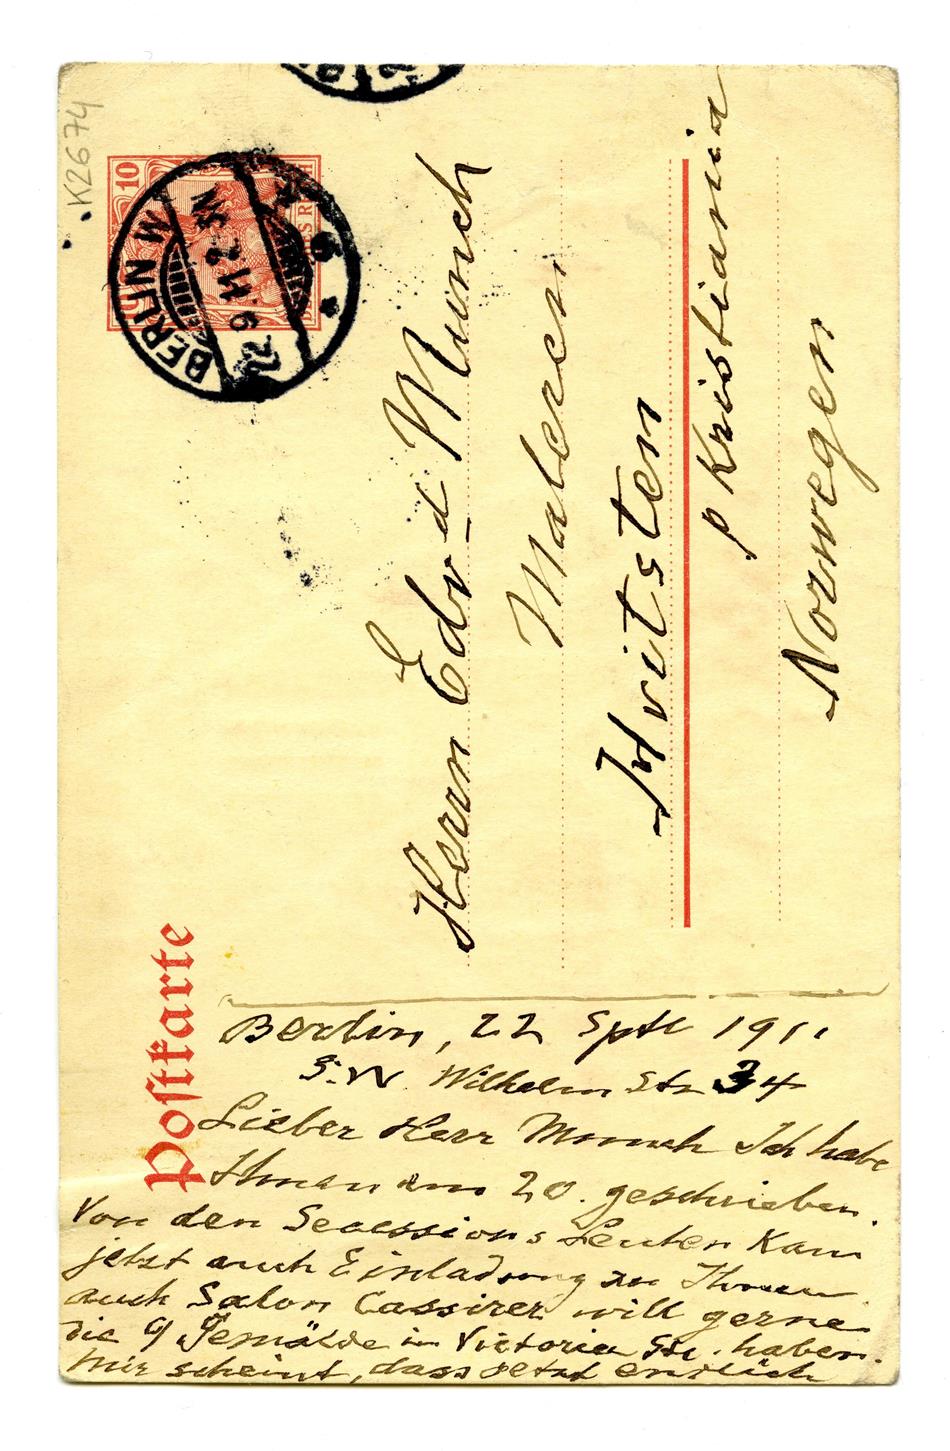 K2674
10
BERLIN W
22 9. 11. 2-3N
Postkarte
Herrn Edvd Munch
Maleren
Hvitsten
p Kristiania
Norwegen
Berlin, 22 Sptl 1911
S.W. Wilhelm Str 34
Lieber Herr Munch Ich habe
Ihnen am 20. geschrieben.
Von den Secessions Leuten kam
jetzt auch Einladung zu Ihnen
auch Salon Cassirer will gerne
die 9 Gemälde in Victoria Str. haben.
Mir scheint, dass jetzt endlich